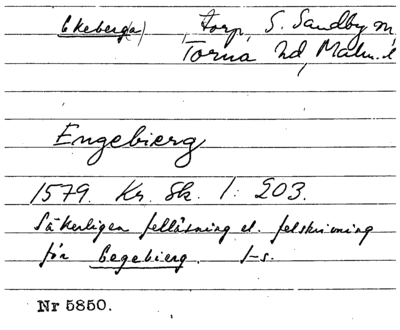 Ekeberg(a) , torp, S. Sandby sn,
Torna hd, Malm. l
Engebierg
1579. Kr. Sk. 1: 203.
Säkerligen felläsning el. felskrivning
för Eegebierg. I-s.
Nr 5850.